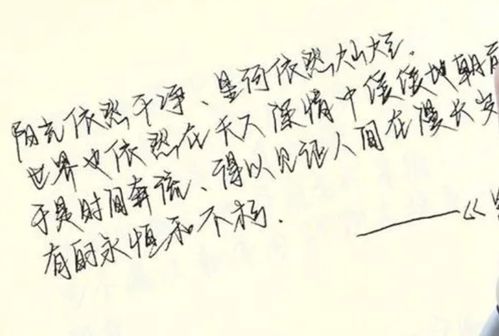 阳光依然干净、星河依然灿烂.
世界也依然在天人深情中缓缓地朝前
于是时间奔流、得以见证人间在漫长岁
有的永恒和不朽.
——《